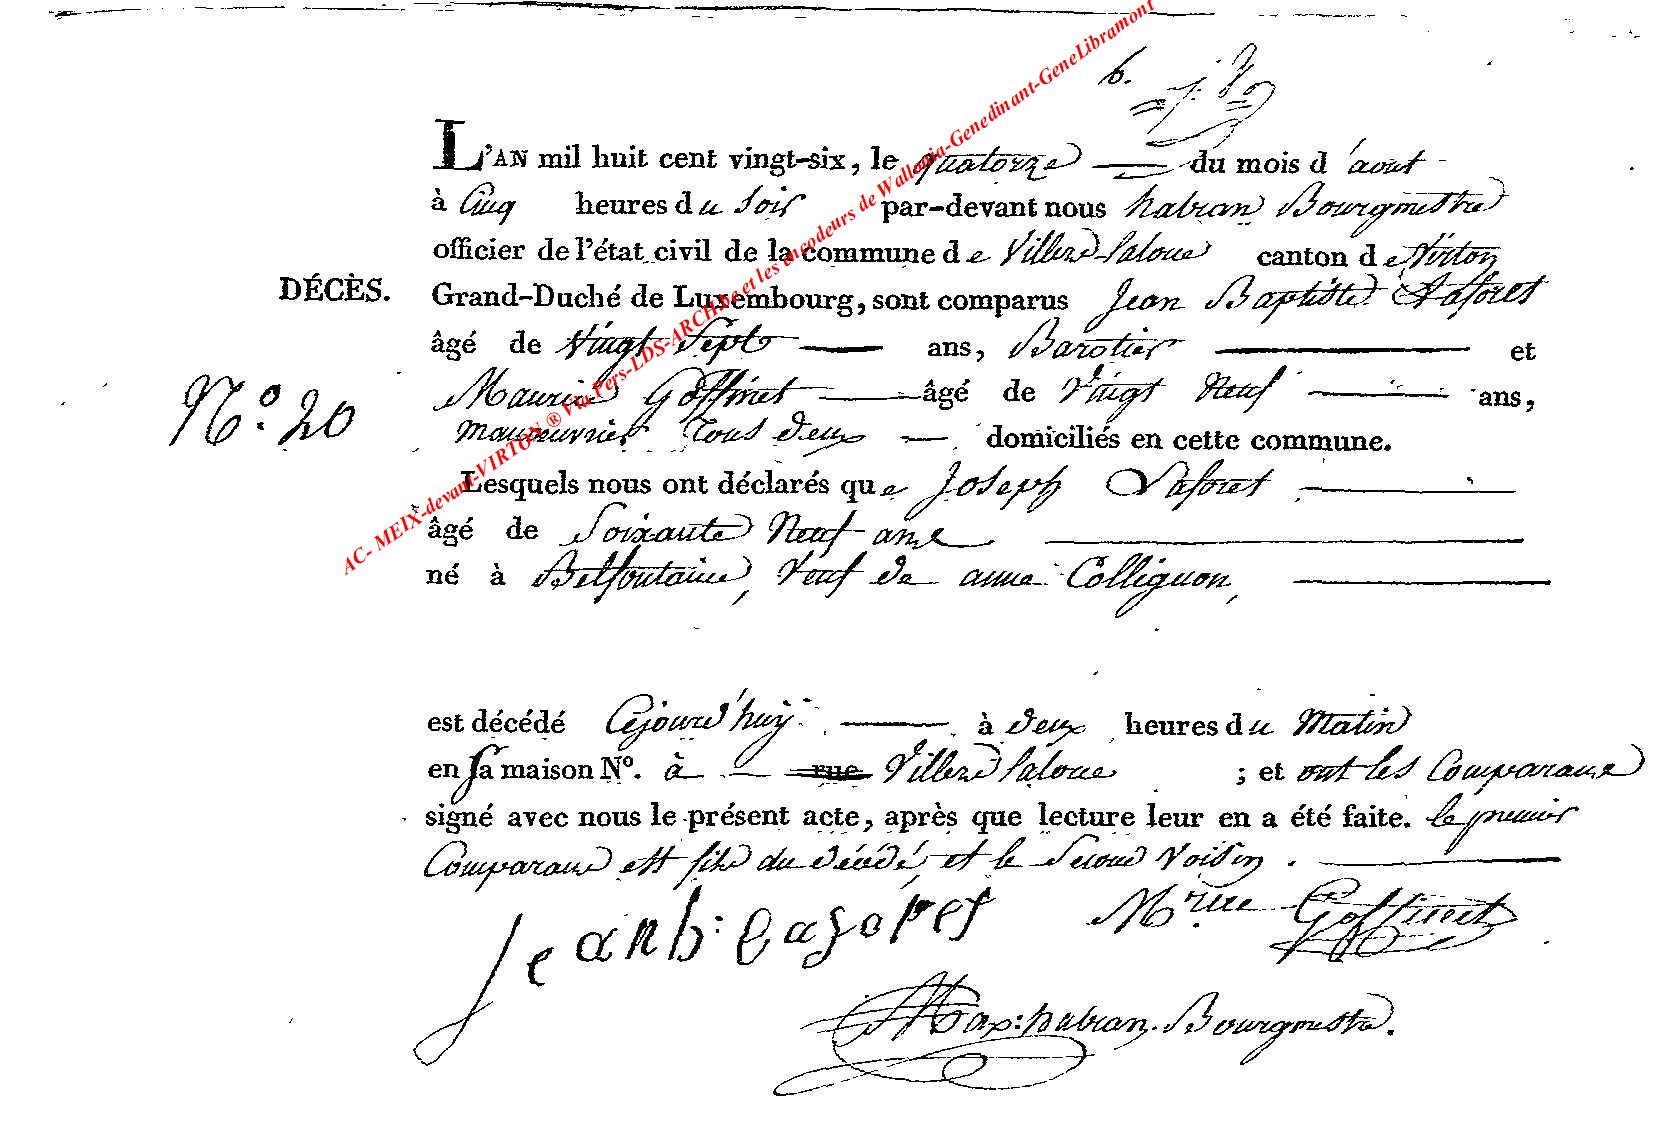 6.
L'AN mil huit cent vingt-six, le quatorze du mois d'aout
à Cinq heures du Soir par-devant nous habran Bourgmestre
officier de l'état civil de la commune de Villers laloue canton de Virton
DÉCÈS. Grand-Duché de Luxembourg, sont comparus Jean Baptiste Laforet
âgé de Vingt Sept ans, Barotier et
Maurice Goffinet âgé de Vingt Neuf ans,
N.º 20
manoeuvrier tous deux domiciliés en cette commune.
Lesquels nous ont déclarés que Joseph Laforet
âgé de Soixante Neuf ans
né à Belfontaine, Veuf de anne Collignon,
est décédé Cejourd'huy à deux heures du Matin
en sa maison Nº. à rue Villers laloue ; et ont les Comparans
signé avec nous le présent acte, après que lecture leur en a été faite. le premier
Comparant est fils du décédé, et le Second Voisin.
Jean b: Laforet Mrice Goffinet
Max: habran. Bourgmestre.
AC- MEIX-devant-VIRTON ® Via Pers-LDS-ARCH.be et les encodeurs de Wallonia-Genedinant-GeneLibramont